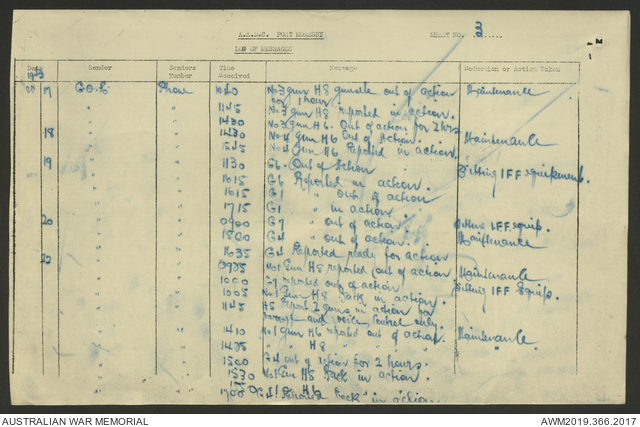 A.A.D.C. PORT MORESBY SHEET NO. 3
LOG OF MESSAGES
Date Sender Senders Number Time Received Message Deduction or Action Taken
17 G.O.R. Phone 1040 No 3 gun H8 out of action Maintenance
for 1 hour.
" " 1145 No 3 gun H8 reported in action.
" " 1430 No 3 gun H6. Out of action for 2 hrs.
18 " " 1430 No 4 gun H6 out of action. Maintenance
" " 1545 No 4 gun H6 Reported in action
19 " " 1130 G6. Out of action Fitting IFF equipements.
" " 1615 G6 Reported in action.
" " 1615 G1 " out of action
" " 1715 G1 " in action.
20 " " 0900 G7 " out of action. Fitting IFF equip.
" " 1500 G4 " out of action. Maintenance
" " 1635 G4 Reported ready for action
22 " " 0935 No 1 Gun H8 reported out of action Maintenance
" " 1000 G7 reported out of action Fitting IFF Equip.
" " 1005 No 1 Gun H8 back in action.
" " 1145 H8 report 2 guns in action for
barrage and voice control only.
" " 1410 No 1 gun H6 reported out of action. Maintenance
" " 1435 " H8 " " "
" " 1500 G4 out of action for 2 hours.
" " 1530 No 1 Gun H8 back in action.
" " H6 "
" " 1700 G4 Reported back in action.
AUSTRALIAN WAR MEMORIAL AWM2019.366.2017